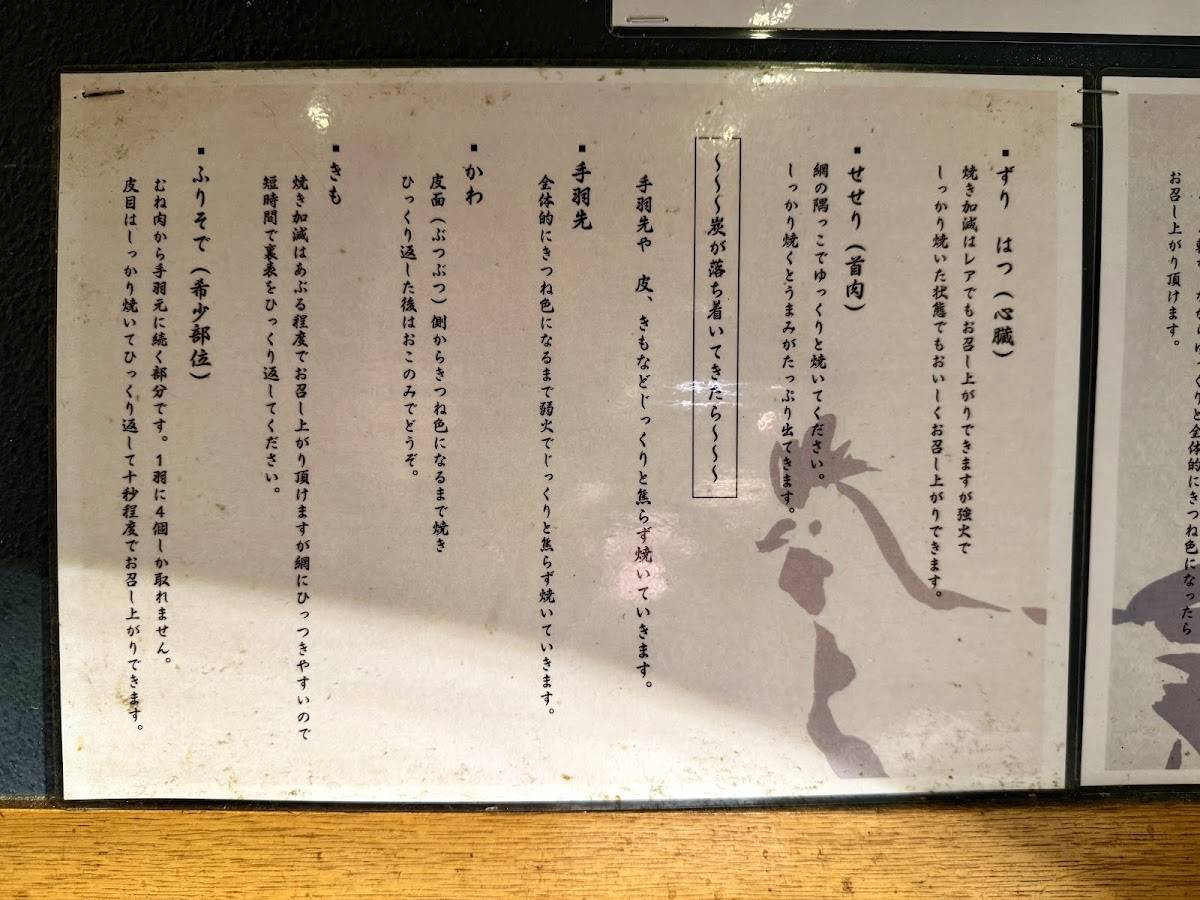 お召し上がり頂けます。
■ずり はつ（心臓）
焼き加減はレアでもお召し上がりできますが強火で
しっかり焼いた状態でもおいしくお召し上がりできます。
■せせり（首肉）
網の隅っこでゆっくりと焼いてください。
しっかり焼くとうまみがたっぷり出てきます。
～～～炭が落ち着いてきたら～～～
手羽先や 皮、きもなどじっくりと焦らず焼いていきます。
■手羽先
全体的にきつね色になるまで弱火でじっくりと焦らず焼いていきます。
■かわ
皮面（ぶつぶつ）側からきつね色になるまで焼き
ひっくり返した後はおこのみでどうぞ。
■きも
焼き加減はあぶる程度でお召し上がり頂けますが網にひっつきやすいので
短時間で裏表をひっくり返してください。
■ふりそで（希少部位）
むね肉から手羽元に続く部分です。1羽に4個しか取れません。
皮目はしっかり焼いてひっくり返して十秒程度でお召し上がりできます。